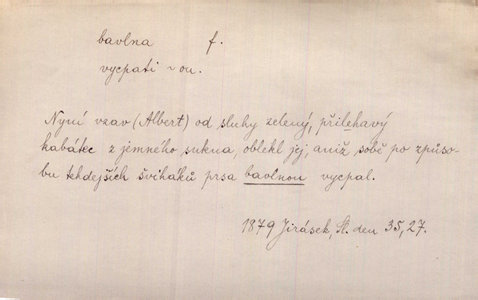 bavlna f.
vycpati ~ou.
Nyní vzav (Albert) od sluhy zelený, přiléhavý
kabátec z jemného sukna, oblékl jej, aniž sobě po způso-
bu tehdejších šviháků prsa bavlnou vycpal.
1879 Jirásek, St. den 35, 27.